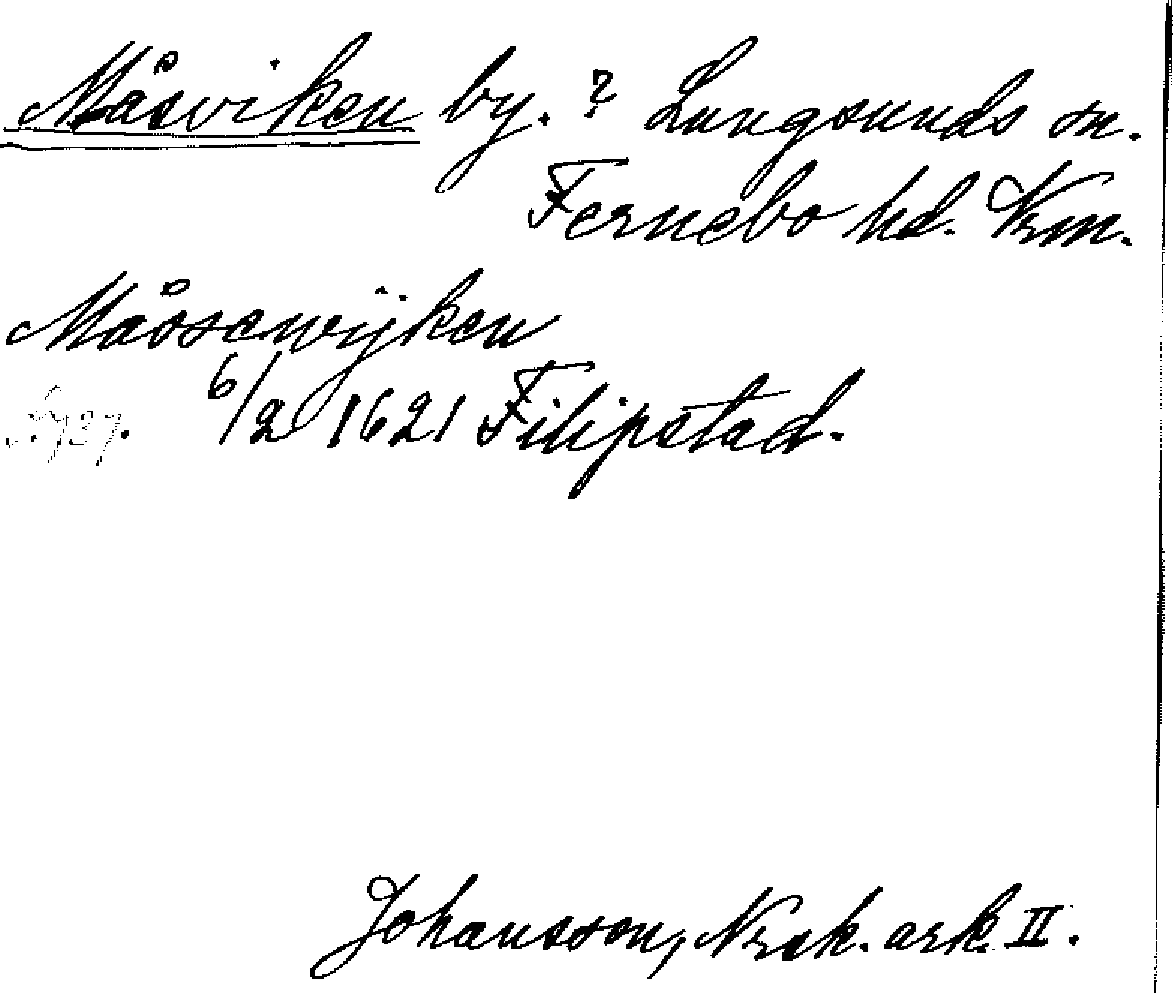 Måsviken by. ? Lungsunds sn.
Fernebo hd. Vrm.
Måssewijken
6/2 1621 Filipstad.
Johansson, Nrsk. ark. II.